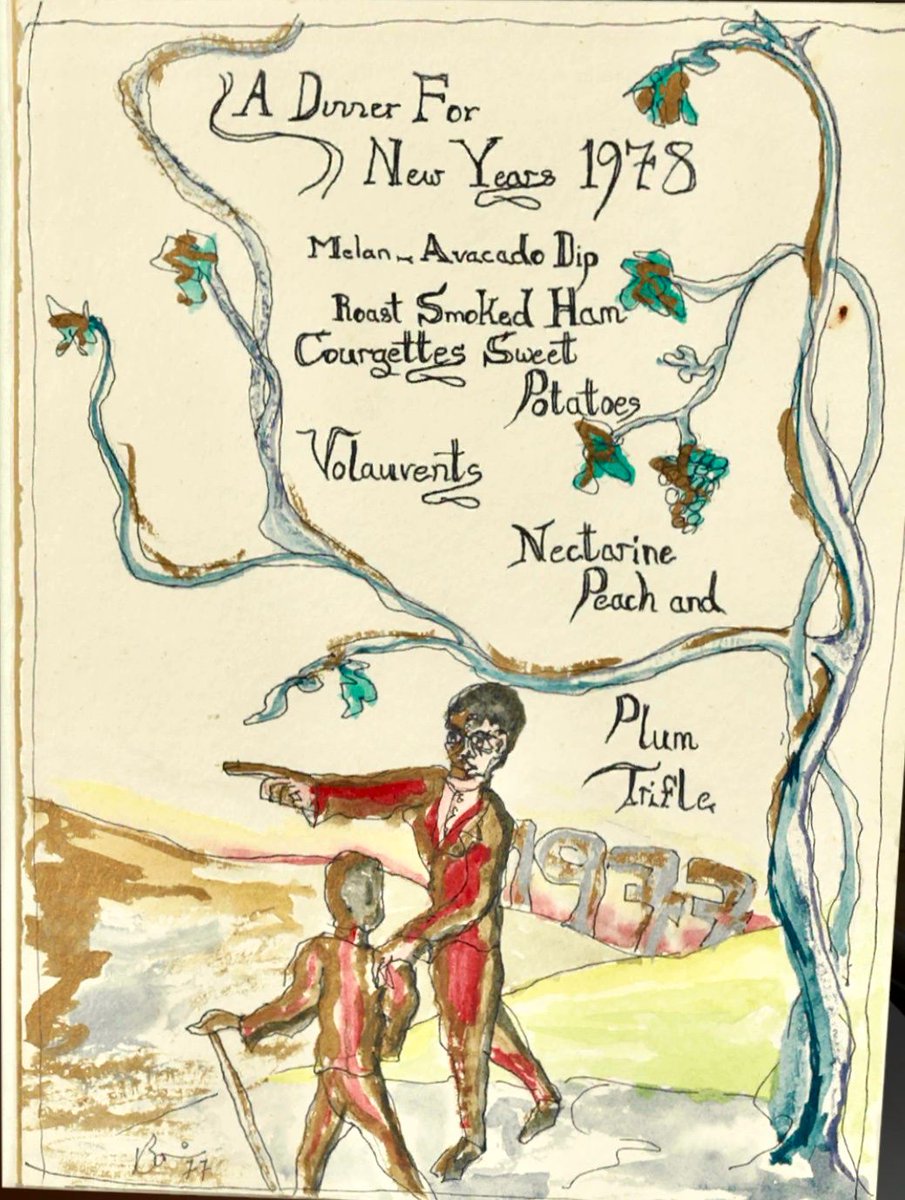 A Dinner For
New Years 1978
Melan - Avacado Dip
Roast Smoked Ham
Courgettes Sweet
Potatoes
Volauvents
Nectarine
Peach and
Plum
Trifle
1977
77